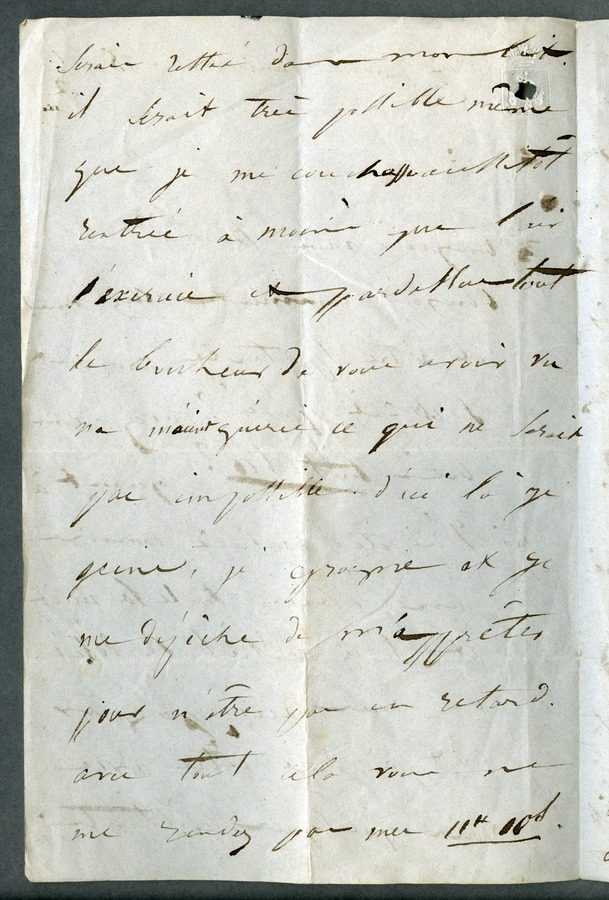 serais restée dans mon lit.
il serait très possible même
que je me couchasse aussitôt
rentrée à moins que l'air
l'exercice et pardessus tout
le bonheur de vous avoir vu
ne m'aient guérie ce qui ne serait
pas impossible d'ici là je
geins, je grogne et je
me dépêche de m'apprêter
pour n'être pas en retard.
avec tout cela vous ne
me rendez pas mes 11# 10s.